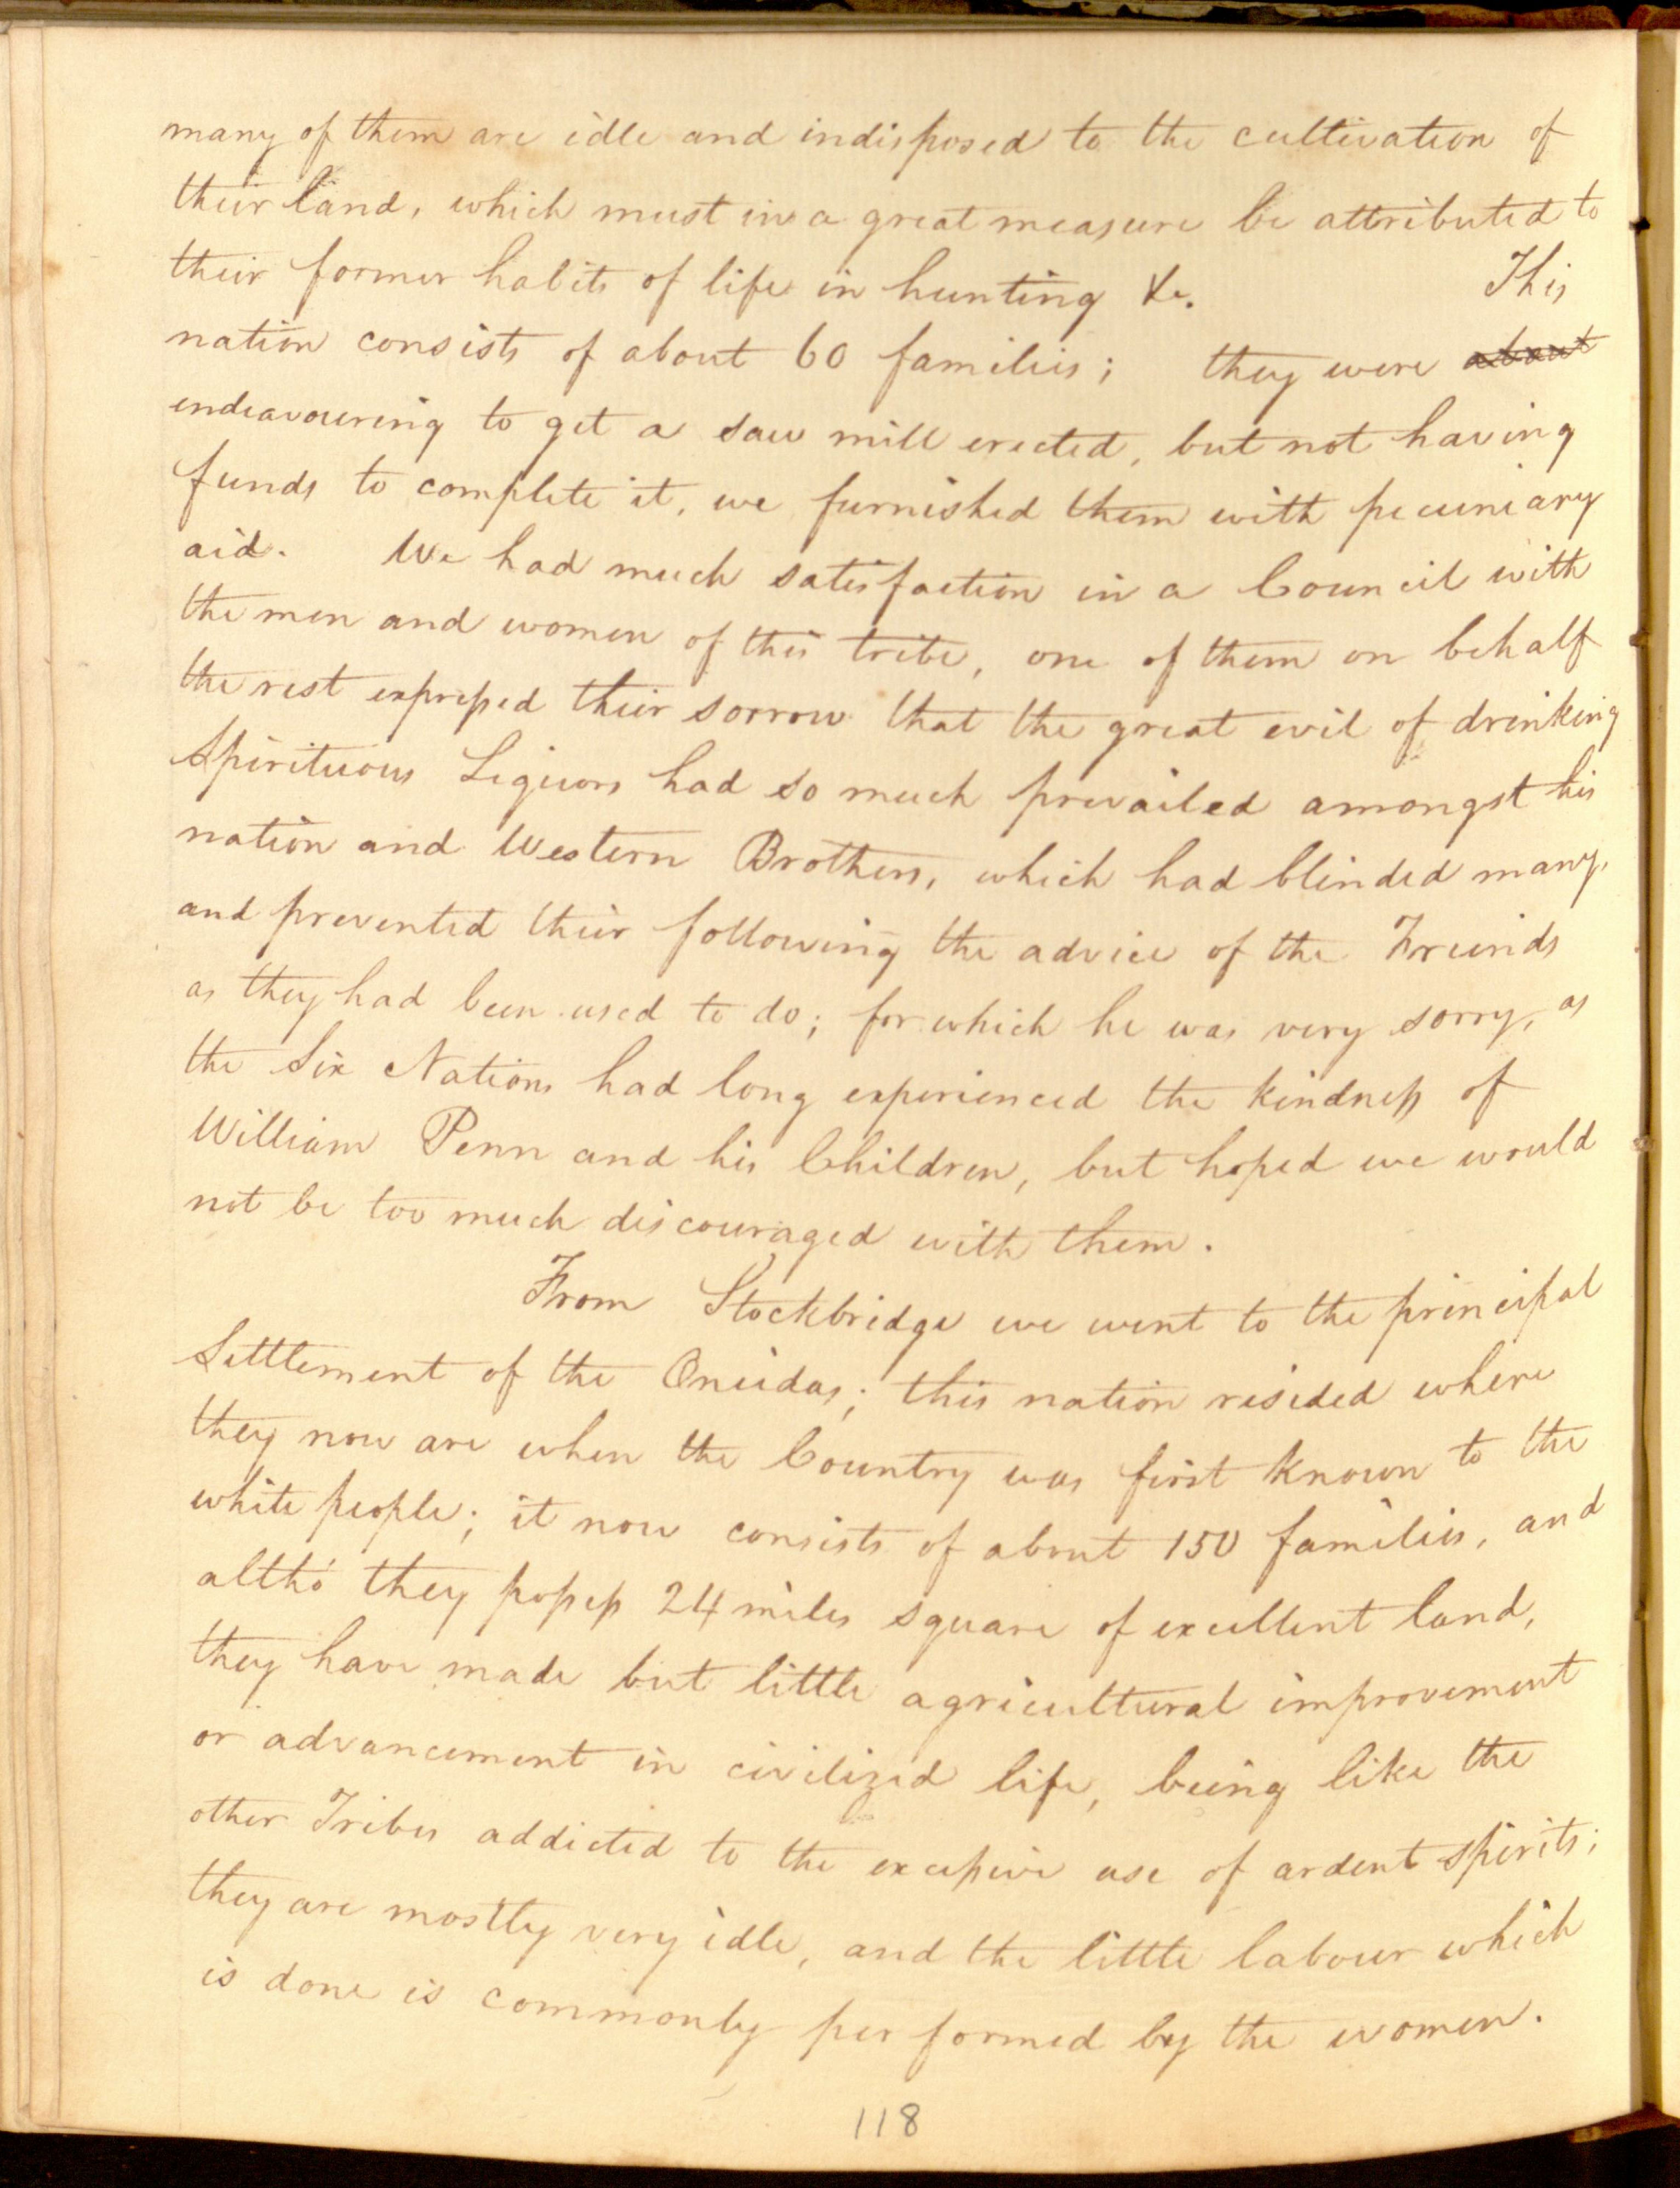 many of them are idle and indisposed to the cultivation of
their land, which must in a great measure be attributed to
their former habits of life in hunting &c. This
nation consists of about 60 families; they were about
endeavouring to get a saw mill erected, but not having
funds to complete it, we furnished them with pecuniary
aid. We had much satisfaction in a Council with
the men and women of this tribe, one of them on behalf
the rest expressed their sorrow that the great evil of drinking
Spirituous Liquors had so much prevailed amongst his
nation and Western Brothers, which had blinded many,
and prevented their following the advice of the Freinds
as they had been used to do; for which he was very sorry, as
the Six Nations had long experienced the kindness of
William Penn and his Children, but hoped we would
not be too much discouraged with them.
From Stockbridge we went to the principal
Settlement of the Oneidas; this nation resided where
they now are when the Country was first known to the
white people; it now consists of about 150 families, and
altho' they possess 24 miles square of excellent land,
they have made but little agricultural improvement
or advancement in civilized life, being like the
other Tribes addicted to the excessive use of ardent spirits;
they are mostly very idle, and the little labour which
is done is commonly performed by the women.
118